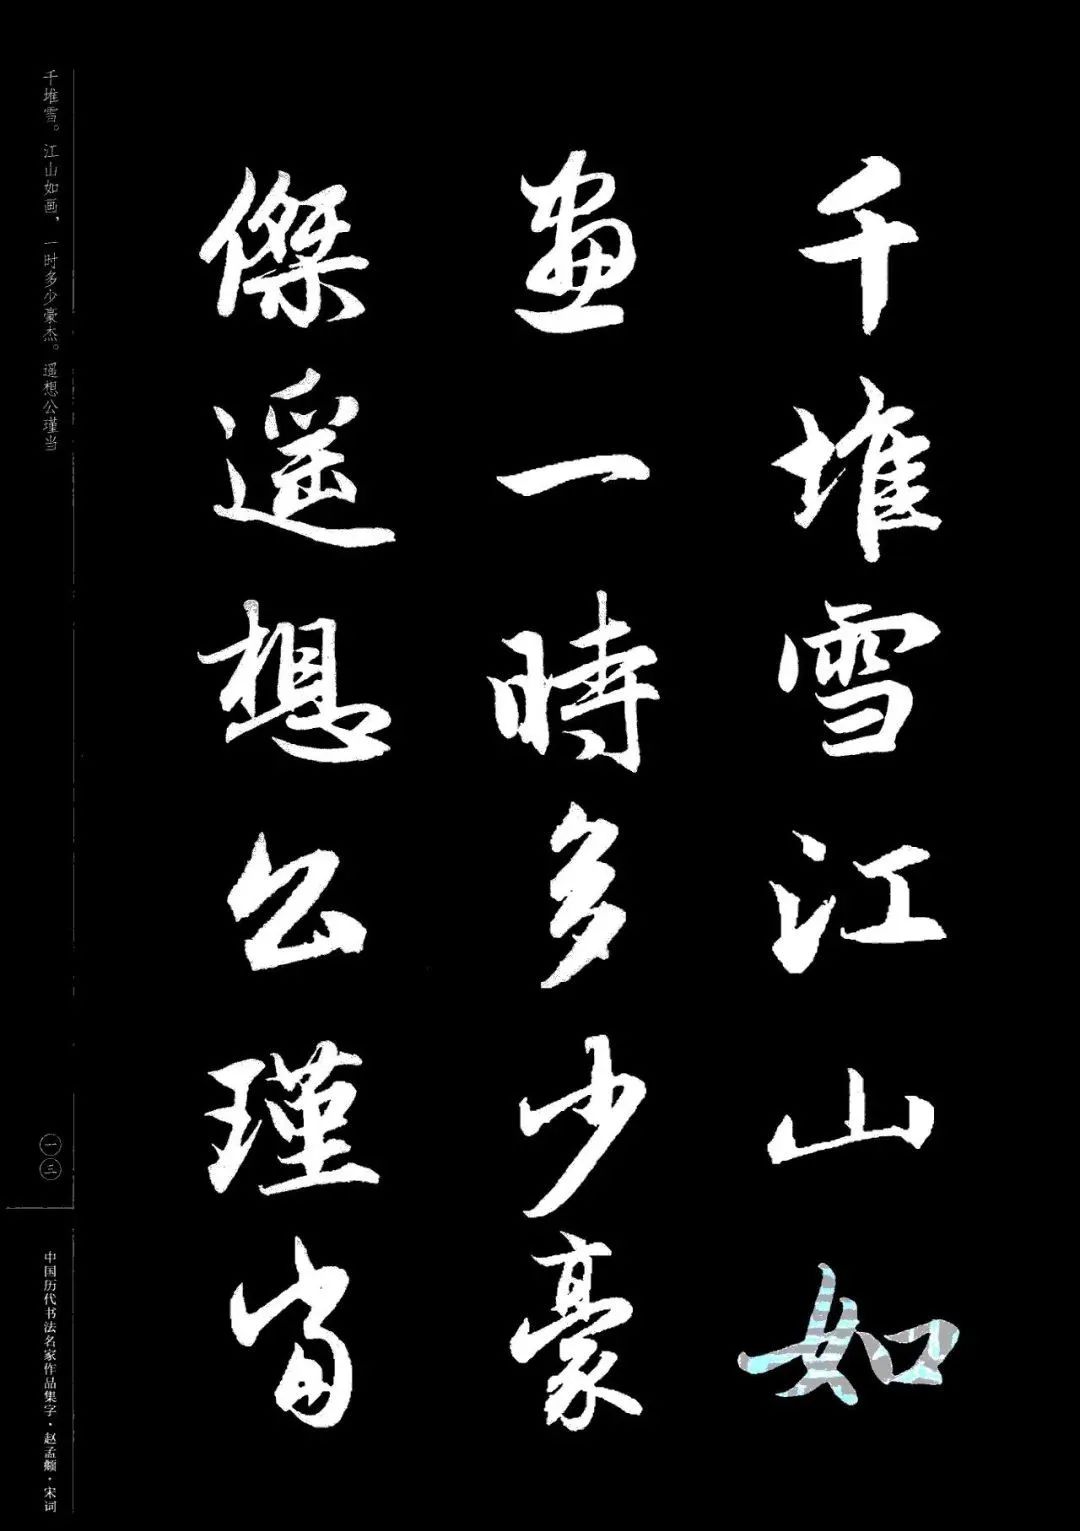 千堆雪江山如
畫一時多少豪
傑遥想公瑾當
千堆雪。江山如画，一时多少豪杰。遥想公瑾当
一三
中国历代书法名家作品集字·赵孟頫·宋词